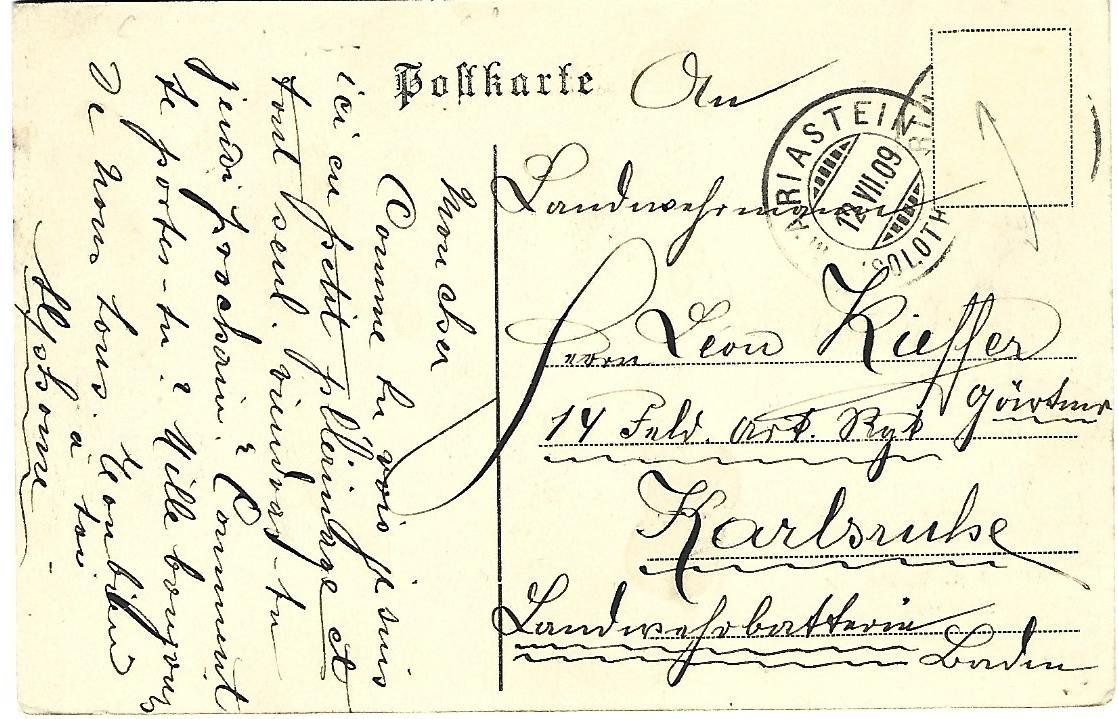 Postkarte
An
Landwehrmann
Herrn Leon Kieffer
Gärtner
14 Feld. Art. Rgt
Karlsruhe
Landwehrbatterie
Baden
MARIASTEIN
12.VII.09
SOLOTH
Mon cher
Comme tu vois je suis
ici en petit pèlerinage et
tout seul. viendras-tu
jeudi prochain? Comment
te portes-tu? Mille bonjours
De nous tous.
à toi